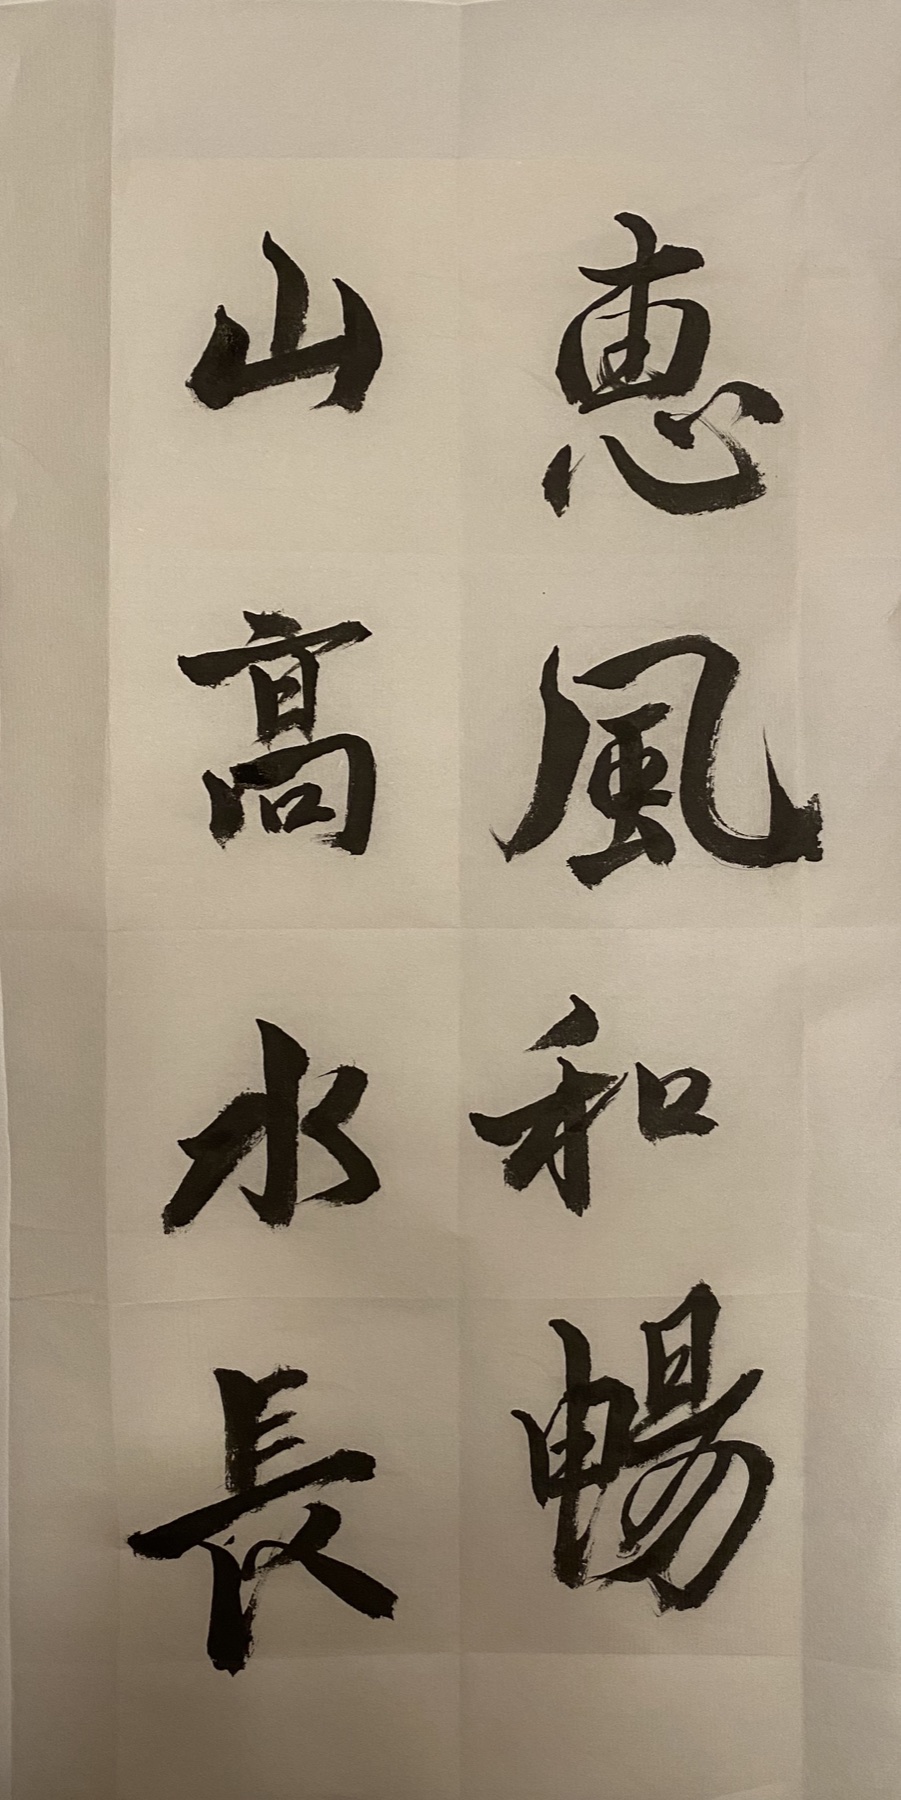 恵風和暢
山高水長